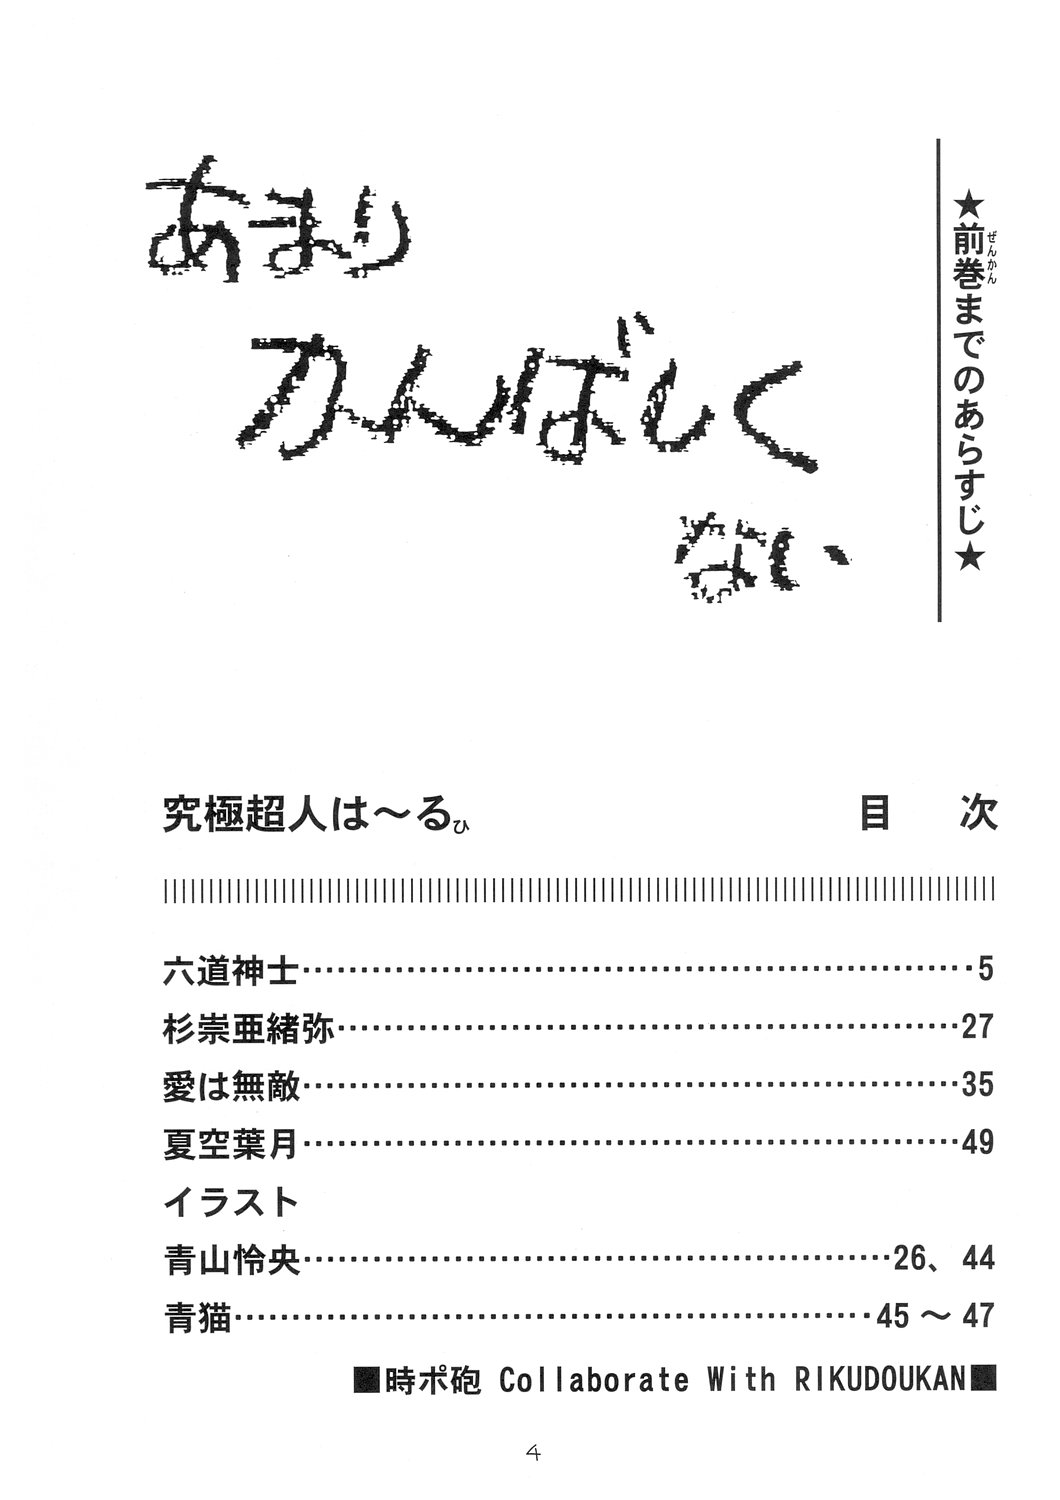 ★前巻までのあらすじ★
ぜんかん
あまり
かんばしく
ない
究極超人は～るひ
目 次
六道神士…………5
杉崇亜緒弥…………27
愛は無敵…………35
夏空葉月…………49
イラスト
青山怜央…………26、44
青猫…………45～47
■時ポ砲 Collaborate With RIKUDOUKAN■
4